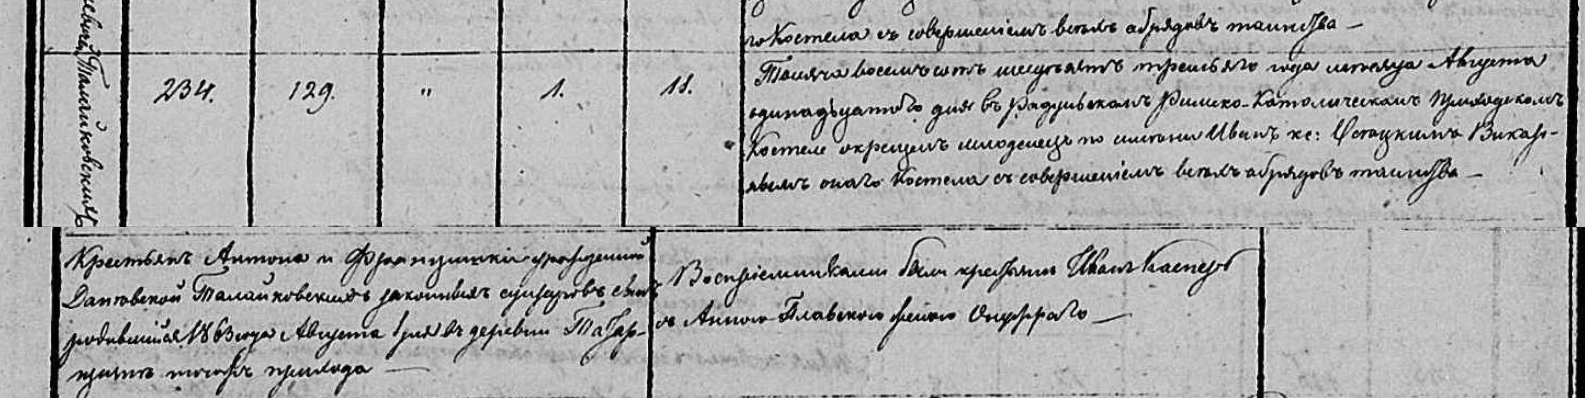 го Костела съ совершеніемъ всѣхъ обрядовъ таинства —
Талайковскихъ
234. 129. " 1. 11.
Тысяча восемьсотъ шестьдесятъ третьяго года мѣсяца Августа
одинадцатого дня въ Радунскомъ Римско-Католическомъ Приходскомъ
Костеле окрещенъ младенецъ по имени Иванъ кс: Викар-
іемъ онаго Костела съ совершеніемъ всѣхъ обрядовъ таинства —
Крестьянъ Антона и Францишки урожденной
Талайковскихъ законныхъ супруговъ сынъ
родившійся 1863 года Августа 1 дня въ деревни Татар-
тогожъ прихода —
Воспріемниками были крестьяне Иванъ Касперъ
съ Анною женою Онуфраго —